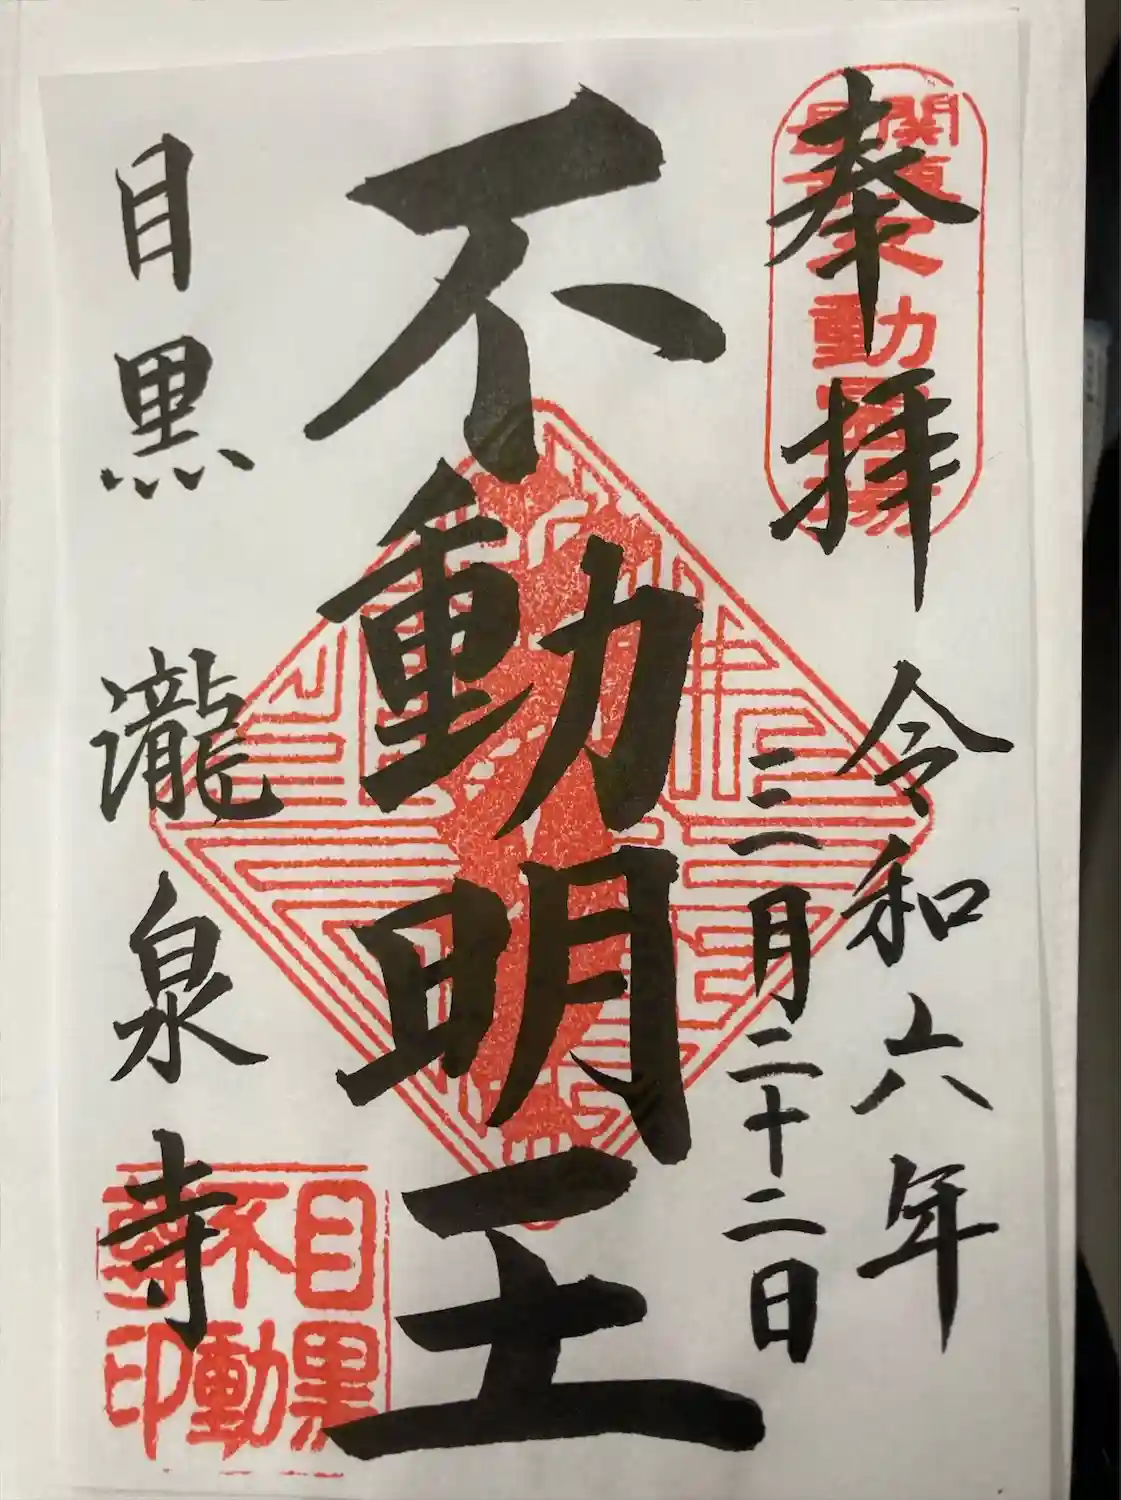 奉拝
令和六年
三月二十二日
不動明王
目黒 瀧泉寺
関東最古不動霊場
目黒不動尊印